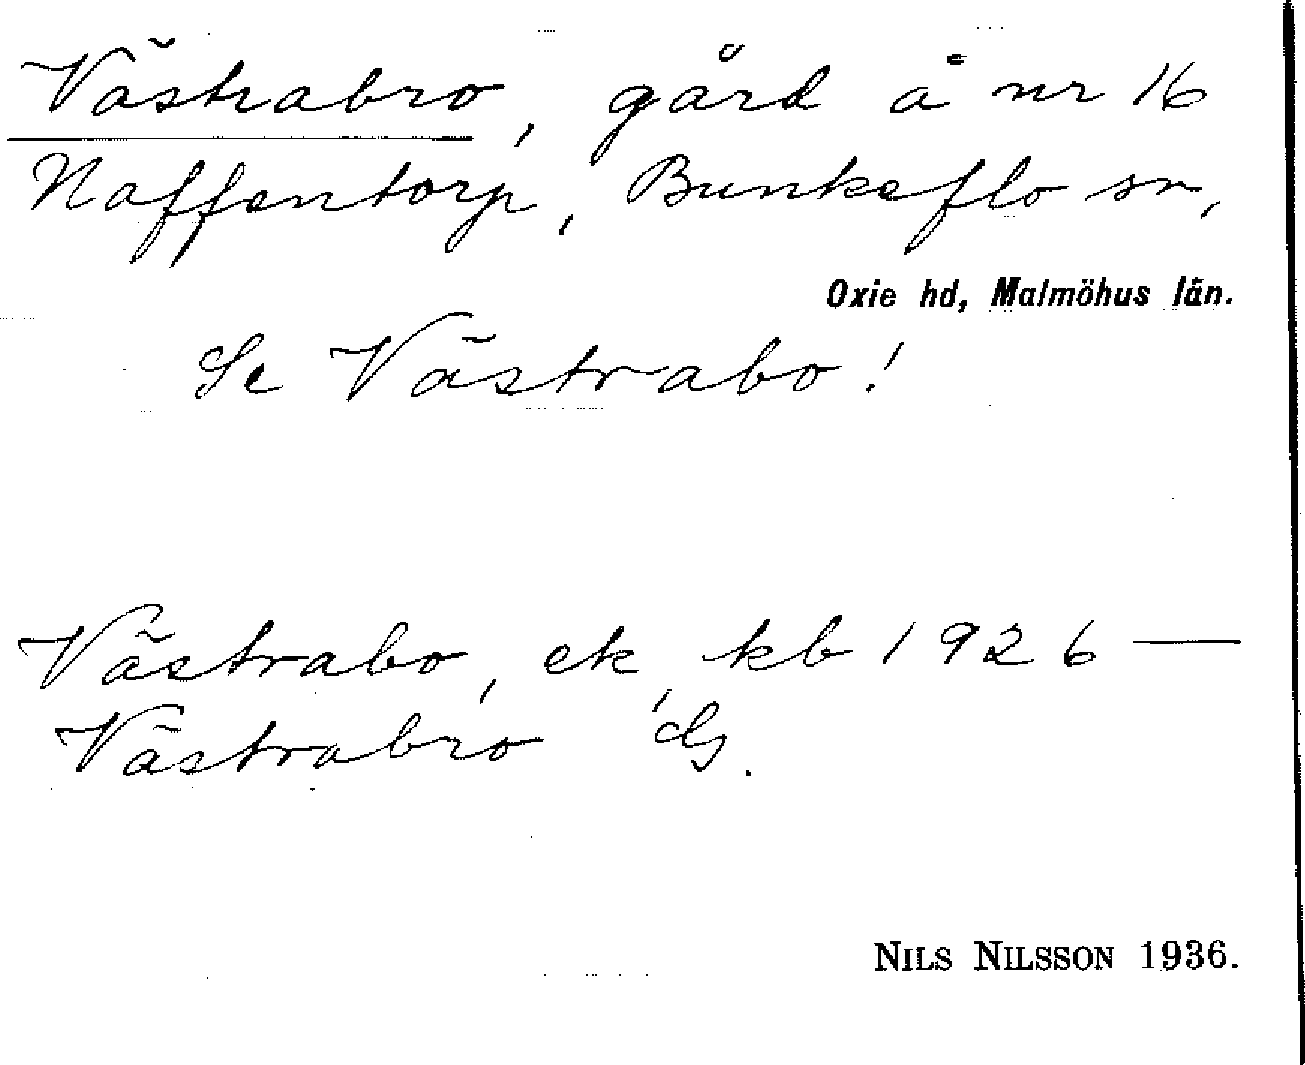 Västrabro, gård å nr 16
Naffentorp, Bunkeflo sn,
Oxie hd, Malmöhus län.
Se Västrabo!
Västrabo, ek, kb 1926 —
Västrabro
NILS NILSSON 1936.